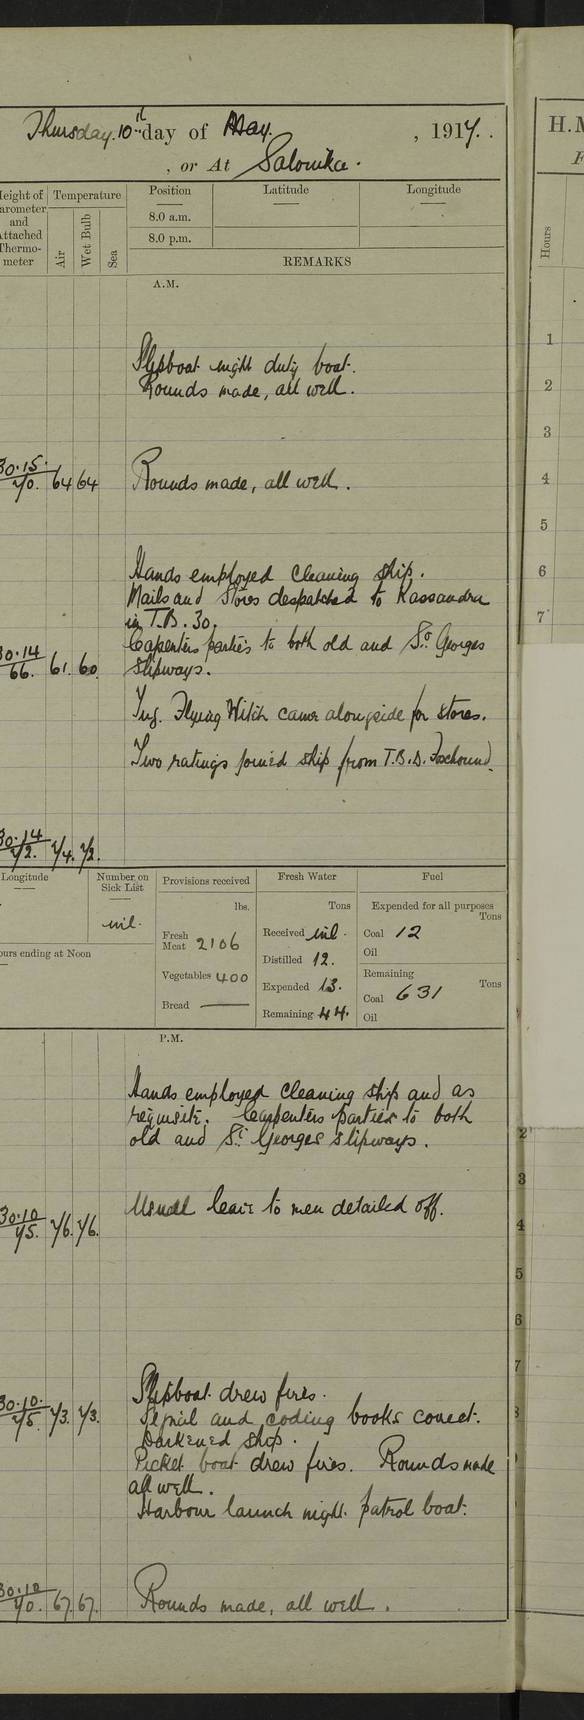 Thursday 10th day of May. , 1917.
, or At Salonika.
Height of Barometer and Attached Thermometer
Temperature
Air
Wet Bulb
Sea
Position
Latitude
Longitude
8.0 a.m.
8.0 p.m.
REMARKS
A.M.
Slipboat night duty boat.
Rounds made, all well.
30.15 / 70. 64 64 Rounds made, all well.
Hands employed cleaning ship.
Mails and Stores despatched to Kassandra
in T.B. 30.
Carpenters parties to both old and St Georges
30.14 / 66. 61. 60. slipways.
Tug. Flying Witch came alongside for stores.
Two ratings joined ship from T.B.D. Foxhound.
30.14 / 72. 74. 72.
Longitude
Number on Sick List
nil.
ours ending at Noon
Provisions received
lbs.
Fresh Meat 2106
Vegetables 400
Bread —
Fresh Water
Tons
Received nil.
Distilled 12.
Expended 13.
Remaining 44.
Fuel
Expended for all purposes
Tons
Coal 12
Oil
Remaining
Tons
Coal 631
Oil
P.M.
Hands employed cleaning ship and as
requisite. Carpenters parties to both
old and St Georges slipways.
30.10 / 75. 76. 76. Usual leave to men detailed off.
Slipboat drew fires.
30.10. / 75. 73. 73. Signal and coding books correct.
Darkened ship.
Picket boat drew fires. Rounds made
all well.
Harbour launch night patrol boat.
30.10 / 70. 67. 67. Rounds made, all well.
H.M
F
Hours
1
2
3
4
5
6
7
2
3
4
5
6
7
8